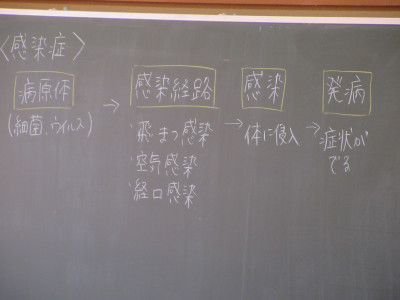 〈感染症〉
病原体 → 感染経路 感染 発病
(細菌、ウイルス)
・飛まつ感染 → 体に侵入 → 症状が
でる
・空気感染
・経口感染